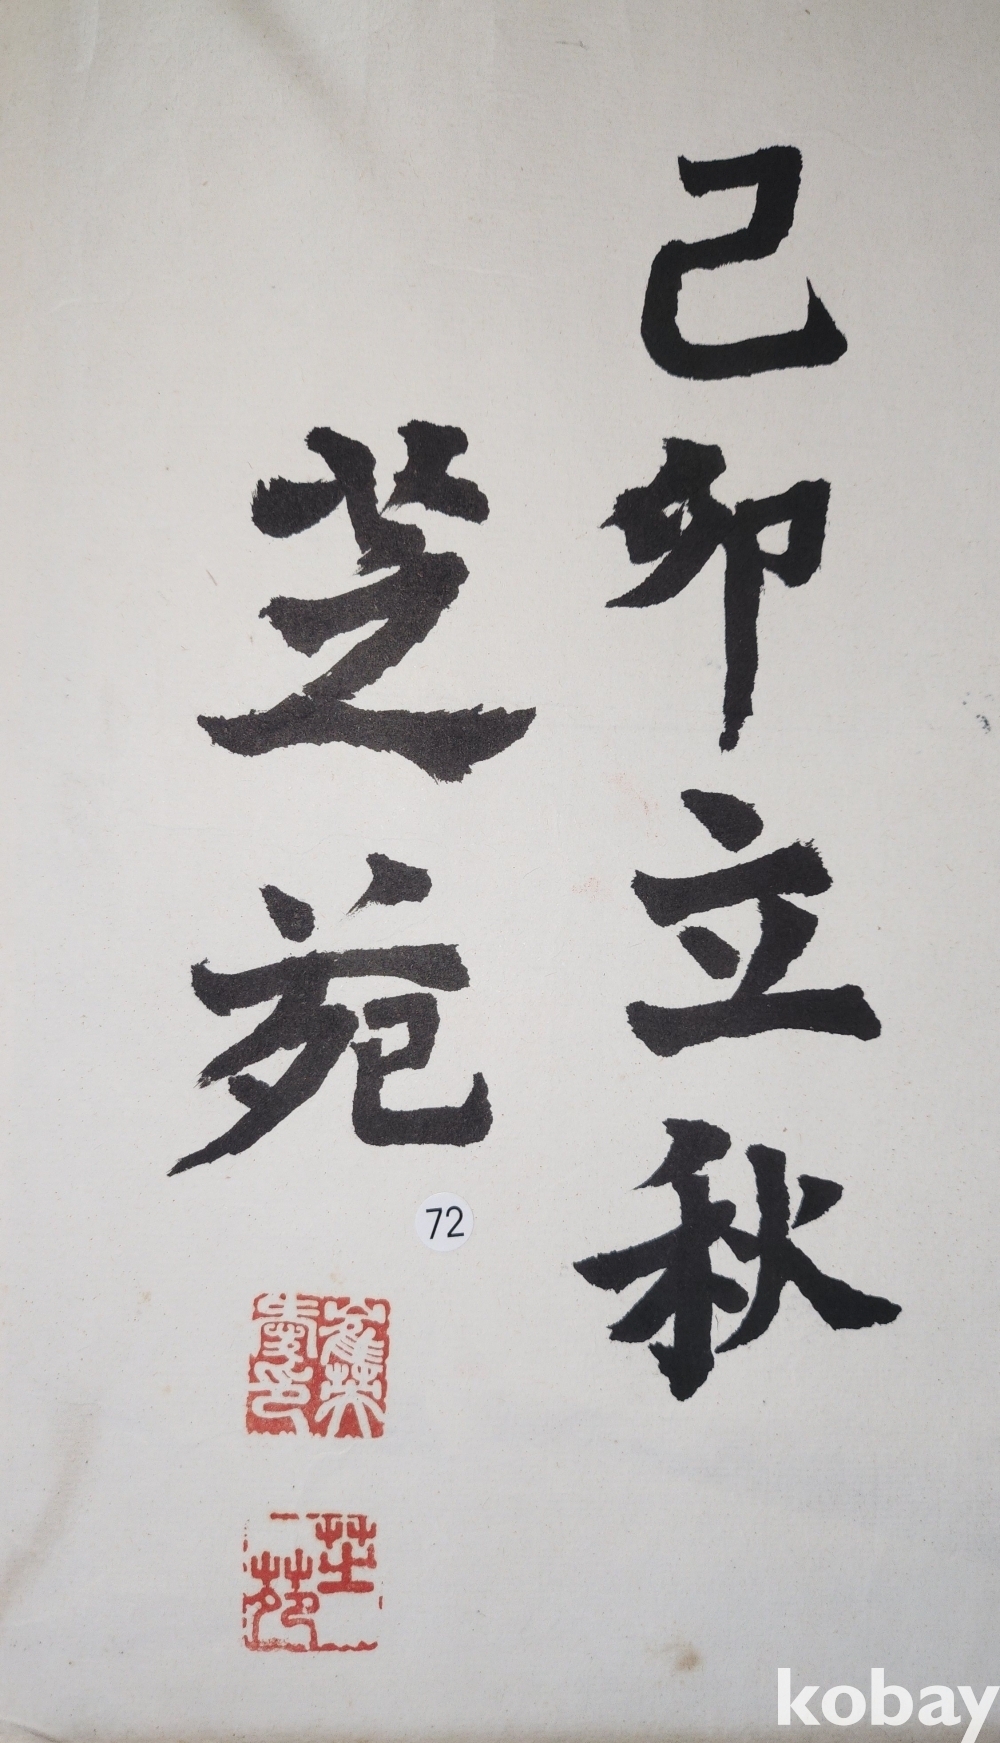 己卯立秋
芝苑
72
芝苑
kobay